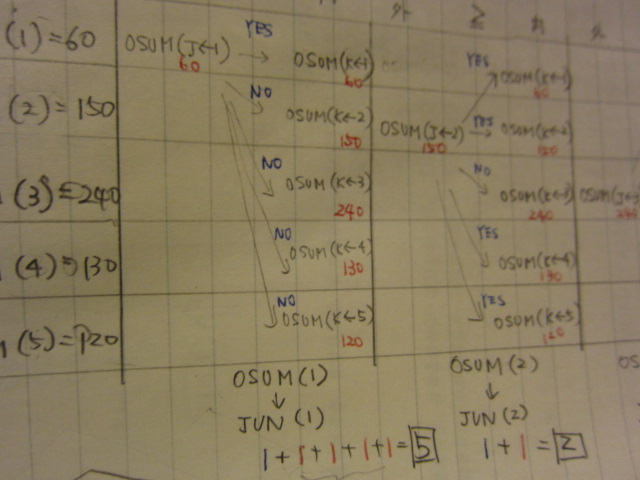 (1)=60
(2)=150
(3)=240
(4)=130
(5)=120
OSUM(J←1)
60
YES
OSUM(K←1)
60
NO
OSUM(K←2)
150
NO
OSUM(K←3)
240
NO
OSUM(K←4)
130
NO
OSUM(K←5)
120
OSUM(1)
↓
JUN(1)
1+1+1+1+1=5
OSUM(J←2)
150
YES
OSUM(K←1)
60
YES
OSUM(K←2)
150
NO
OSUM(K←3)
240
YES
OSUM(K←4)
130
YES
OSUM(K←5)
120
OSUM(2)
↓
JUN(2)
1+1=2
OSUM(J←3
240
OS